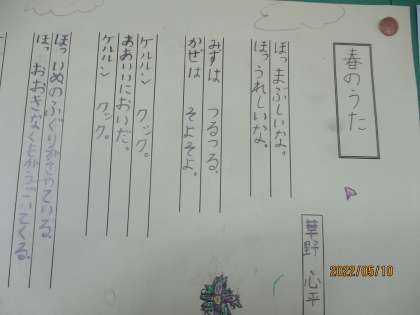 春のうた
草野 心平
ほっ まぶしいな。
ほっ うれしいな。
みずは つるつる。
かぜは そよそよ。
ケルルン クック。
ああいいにおいだ。
ケルルン クック。
ほっ いぬのふぐりがさいている。
ほっ おおきなくもがうごいてくる。
2022/05/10